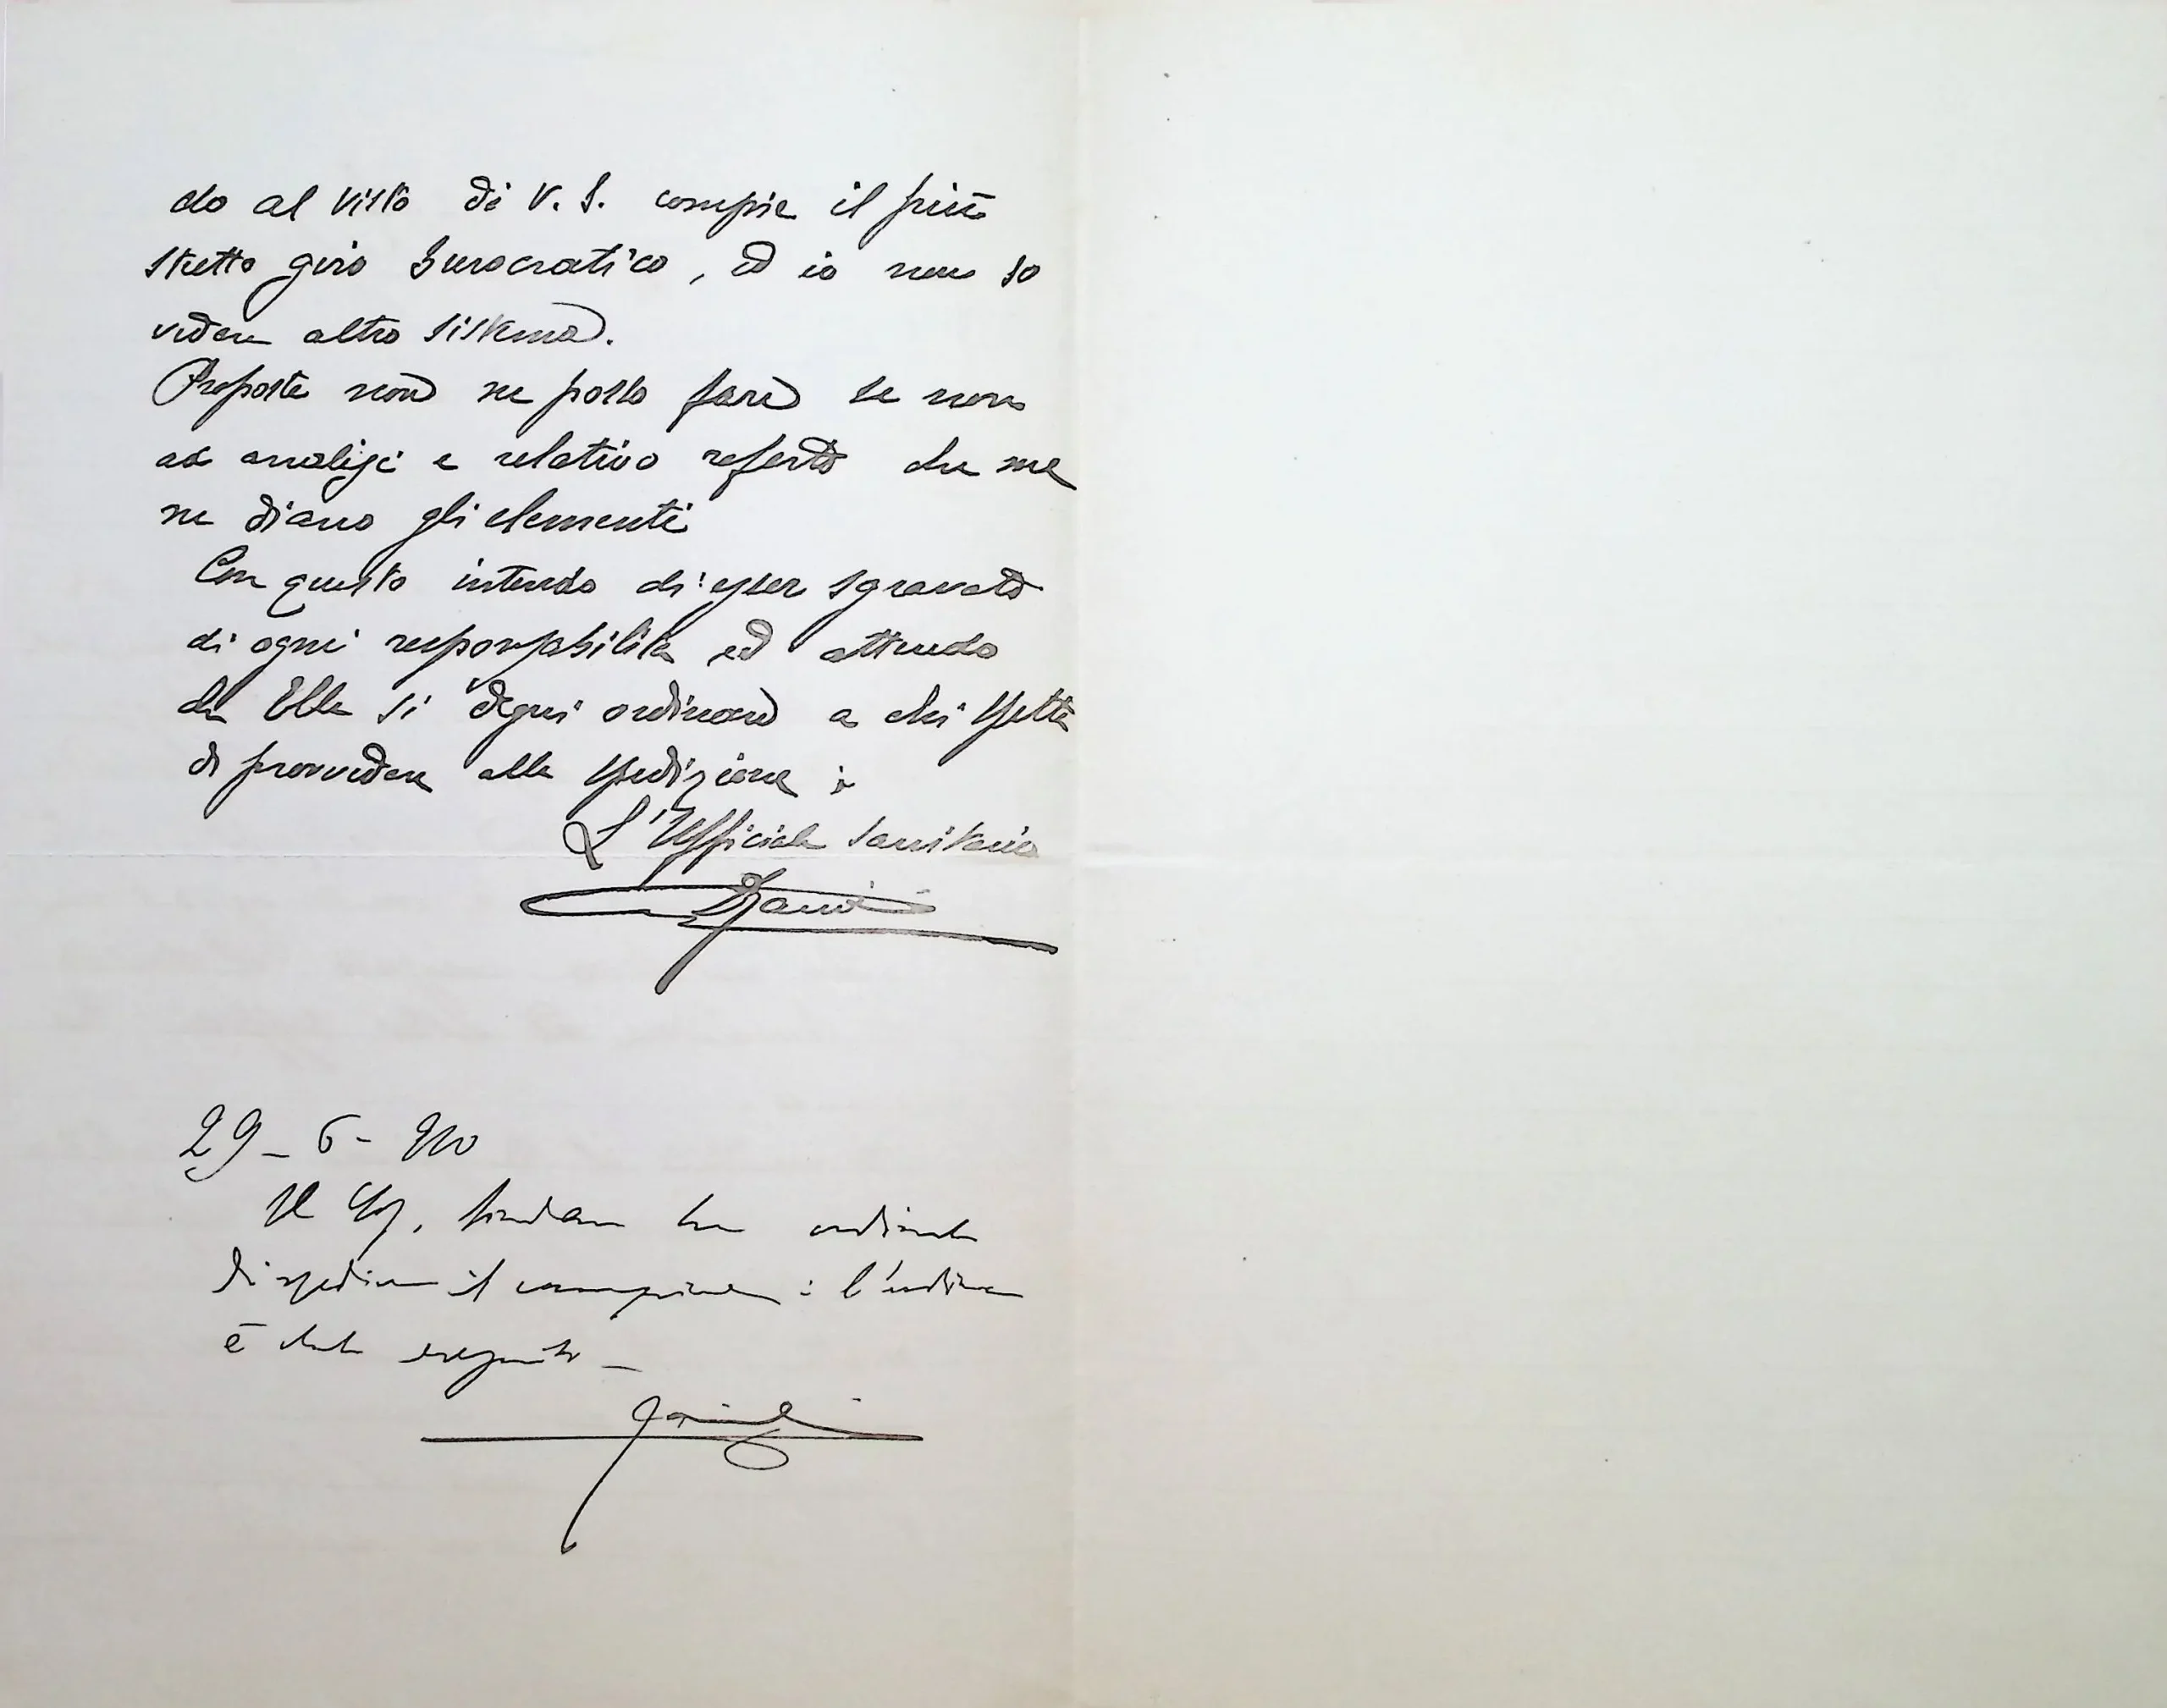 do al visto di V. S. compie il più
stretto giro burocratico, ed io non so
vedere altro sistema.
Proposte non ne posso fare se non
ad analisi e relativo referto che me
ne diano gli elementi
Con questo intendo di esser sgravato
di ogni responsabilità ed attendo
che Ella si degni ordinare a chi spetta
di provvedere alla spedizione:
L'Ufficiale Sanitario
29-6-910
Il Sig. Sindaco ha ordinato
di spedire il campione: l'ordine
è stato eseguito-